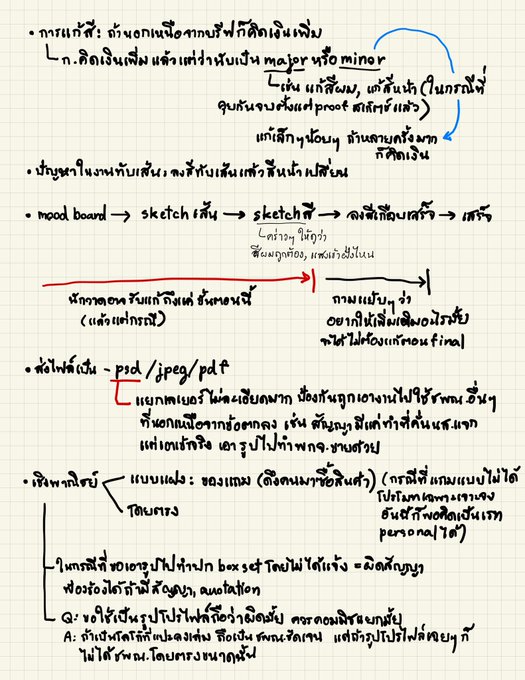 • การแก้สี: ถ้านอกเหนือจากบรีฟก็คิดเงินเพิ่ม
ก.คิดเงินเพิ่ม แล้วแต่ว่านับเป็น major หรือ minor
เช่น แก้สีผม, แก้สีหน้า (ในกรณีที่
คุยกันจบตั้งแต่ proof สเก็ตช์แล้ว)
แก้เล็กๆน้อยๆ ถ้าหลายครั้งมาก
ก็คิดเงิน
• ปัญหาในงานทับเส้น: ลงสีทับเส้นแล้วสีหน้าเปลี่ยน
• mood board → sketch เส้น → sketch สี → ลงสีเกือบเสร็จ → เสร็จ
คร่าวๆ ให้ดูว่า
สีผมถูกต้อง, แสงเข้าฝั่งไหน
นักวาดอาจรับแก้ถึงแค่ขั้นตอนนี้
(แล้วแต่กรณี)
ถามแย้บๆ ว่า
อยากให้เพิ่มเติมอะไรมั้ย
จะได้ไม่ต้องแก้ตอน final
• ส่งไฟล์เป็น - psd/jpeg/pdf
แยกเลเยอร์ไม่ละเอียดมาก ป้องกันถูกเอางานไปใช้ชพณ.อื่นๆ
ที่นอกเหนือจากข้อตกลง เช่น สัญญามีแค่ทำที่คั่นนส.แจก
แต่เอาเข้าจริง เอารูปไปทำพกจ.ขายด้วย
• เชิงพาณิชย์
แบบแฝง: ของแถม (ดึงคนมาซื้อสินค้า) (กรณีที่แถมแบบไม่ได้
โปรโมทเฉพาะเจาะจง
อันนี้ก็พอคิดเป็นเรท
personal ได้)
โดยตรง
ในกรณีที่ขอเอารูปไปทำปก box set โดยไม่ได้แจ้ง = ผิดสัญญา
ฟ้องร้องได้ถ้ามีสัญญา, quotation
Q: ขอใช้เป็นรูปโปรไฟล์ถือว่าผิดมั้ย ควรคอมมิชแยกมั้ย
A: ถ้าเป็นโลโก้ที่แปะลงเล่ม ถือเป็นชพณ.ชัดเจน แต่ถ้ารูปโปรไฟล์เฉยๆ ก็
ไม่ได้ชพณ.โดยตรงขนาดนั้น